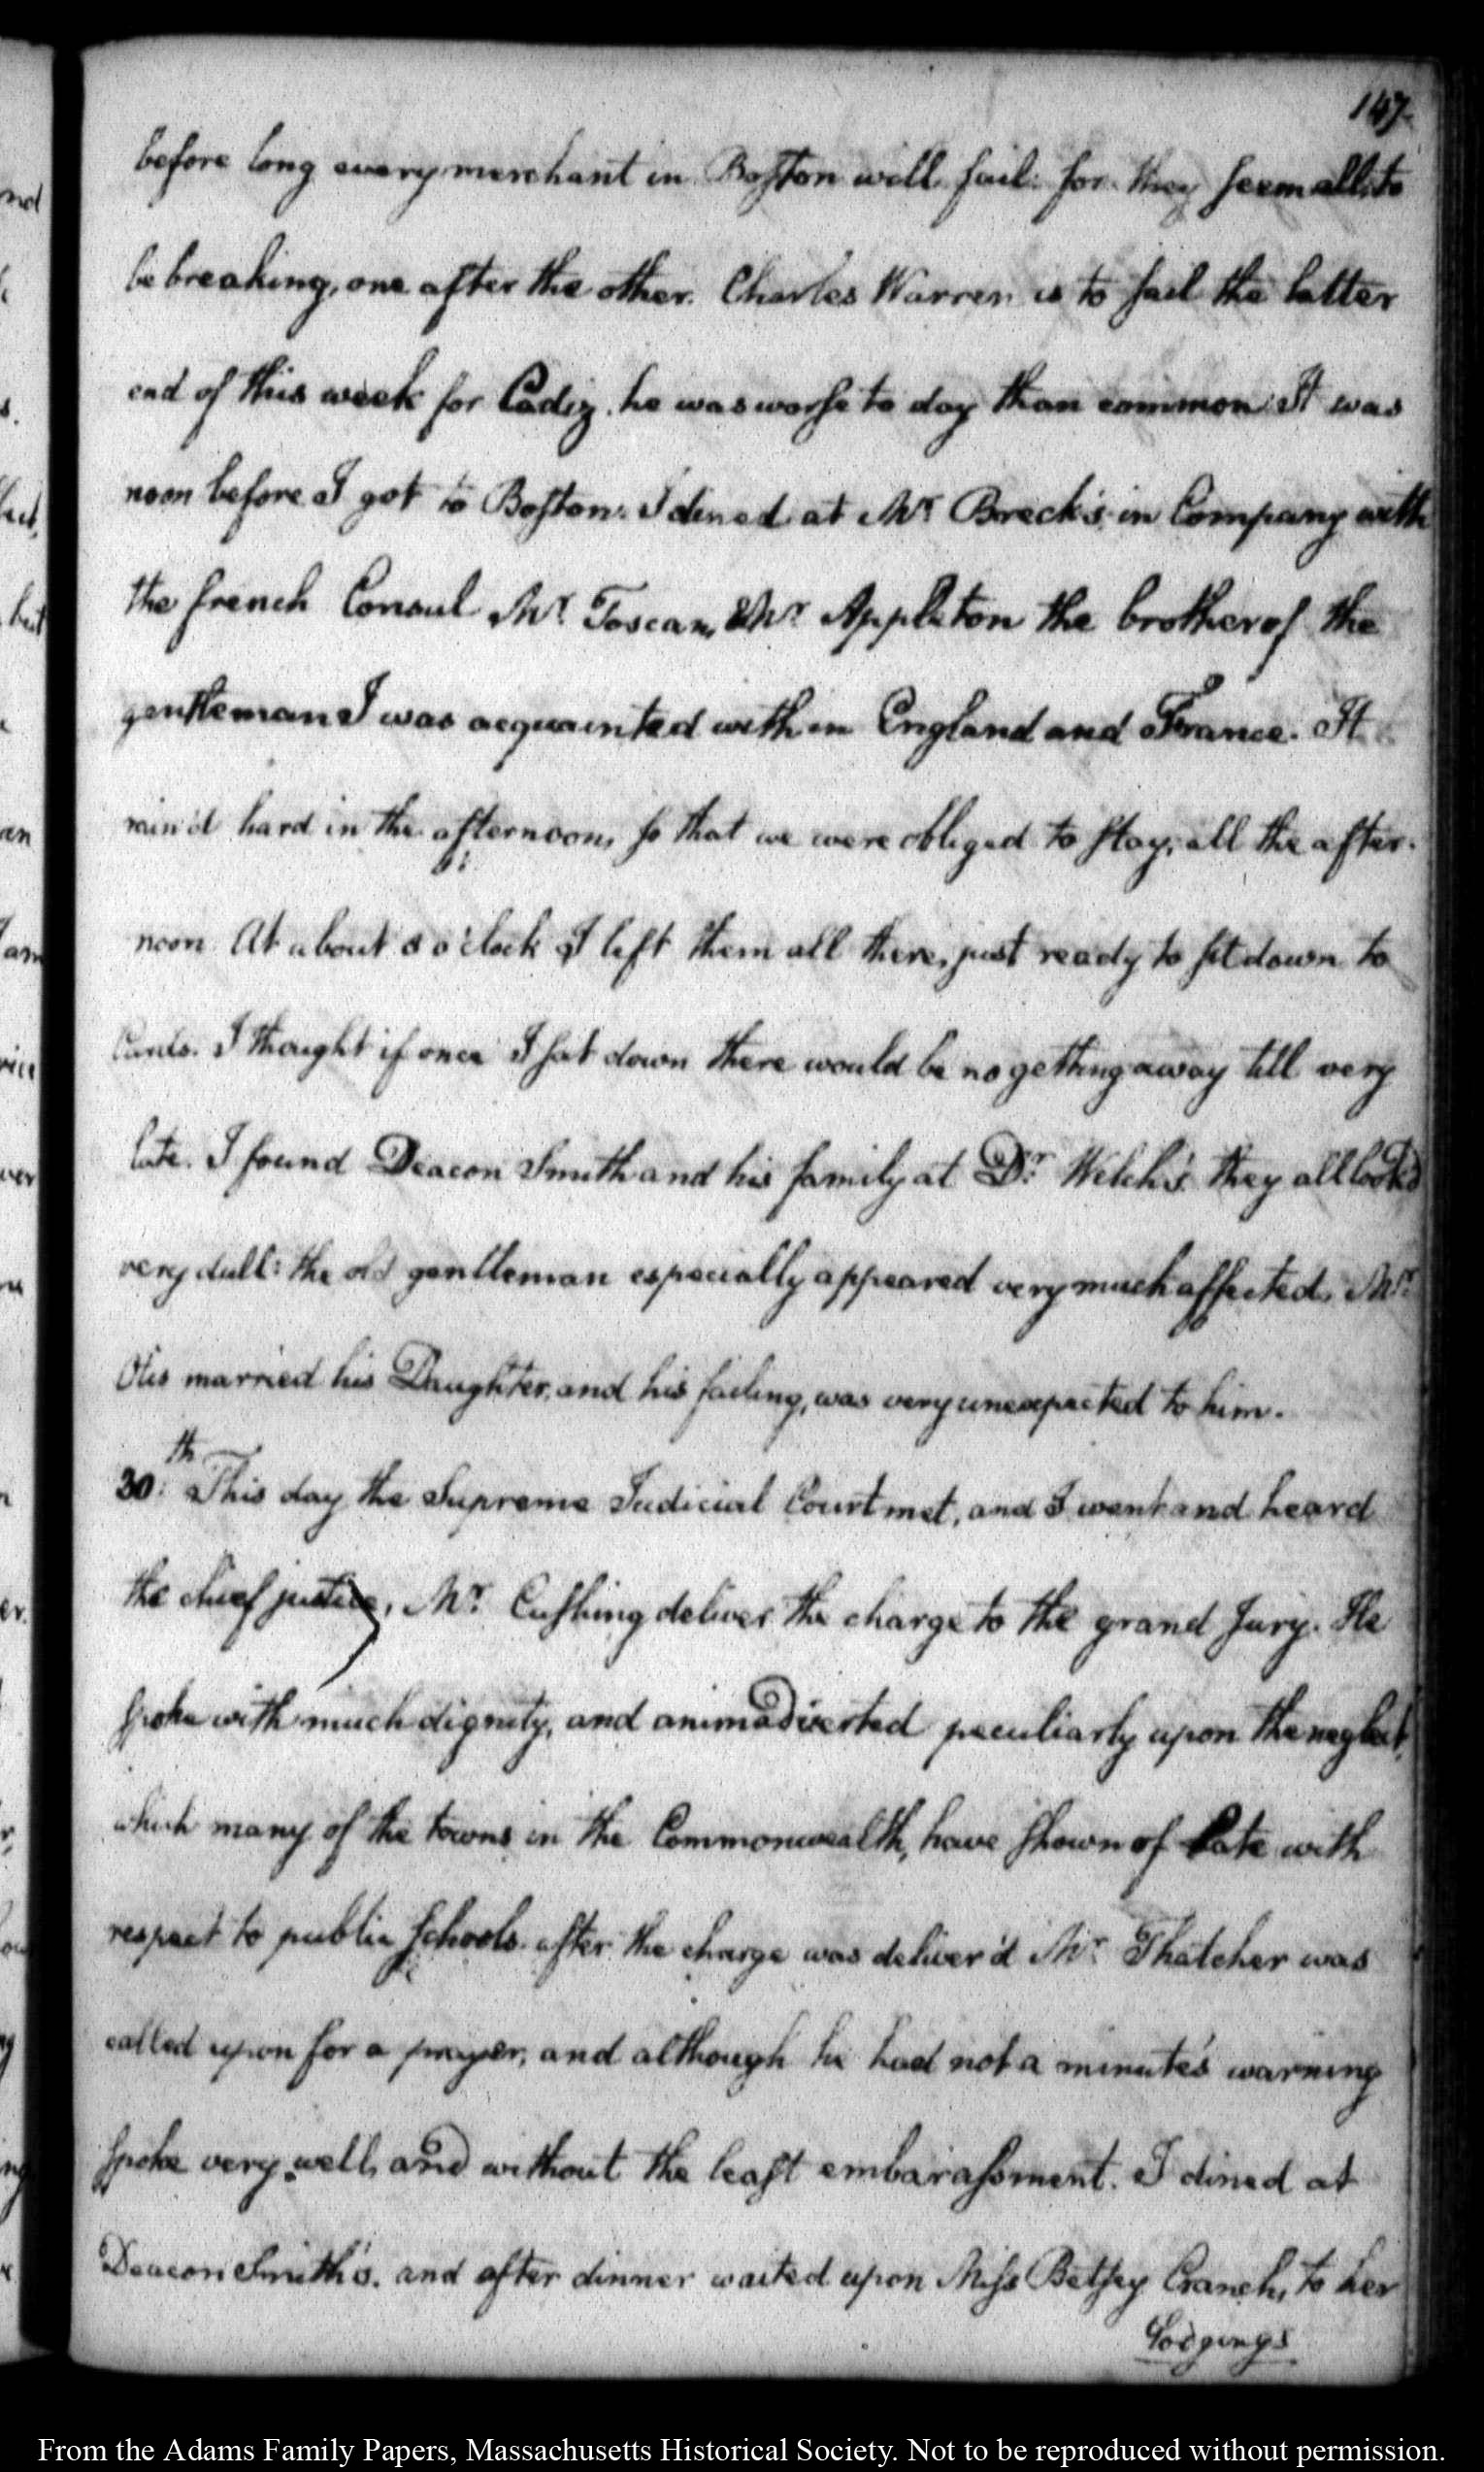 147.
before long every merchant in Boston will fail: for they seem all to
be breaking, one after the other. Charles Warren is to sail the latter
end of this week for Cadiz. he was worse to day than common. It was
noon before I got to Boston. I dined at Mr. Breck's in Company with
the french Consul Mr. Toscan, & Mr. Appleton the brother of the
gentleman I was acquainted with in England and France. It
rain'd hard in the afternoon, so that we were obliged to stay, all the after-
noon. At about 8 o'clock I left them all there, just ready to sit down to
Cards. I thought if once I sat down there would be no getting away till very
late. I found Deacon Smith and his family at Dr. Welch's. they all look'd
very dull: the old gentleman especially appeared very much affected. Mr.
Otis married his Daughter, and his failing, was very unexpected to him.
30th. This day the Supreme Judicial Court met, and I went and heard
the chief justice, Mr. Cushing deliver the charge to the grand Jury. He
spoke with much dignity, and animadiverted peculiarly upon the neglect,
which many of the towns in the Commonwealth, have shown of late with
respect to public schools. after the charge was deliver'd Mr. Thatcher was
called upon for a prayer, and although he had not a minute's warning
spoke very well, and without the least embarassment. I dined at
Deacon Smith's. and after dinner waited upon Miss Betsey Cranch, to her
Lodgings
nd
s.
but
an
am
ver
er.
From the Adams Family Papers, Massachusetts Historical Society. Not to be reproduced without permission.